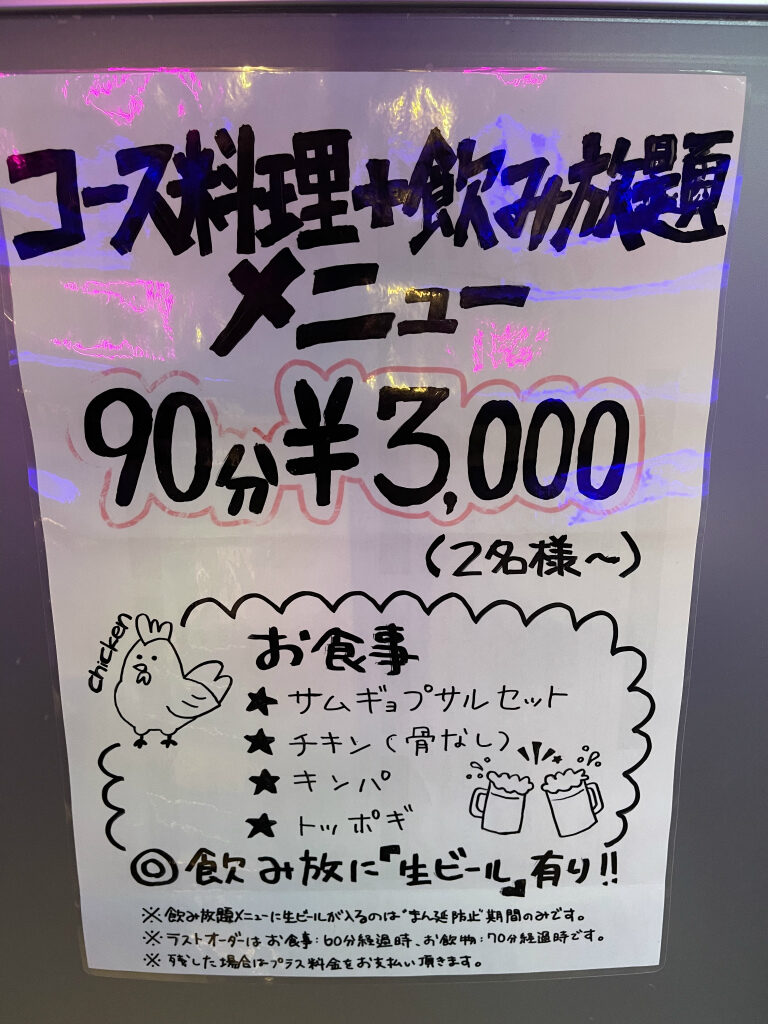 コース料理+飲み放題
メニュー
90分¥3,000
(2名様〜)
chicken
お食事
★ サムギョプサルセット
★ チキン(骨なし)
★ キンパ
★ トッポギ
◎飲み放に『生ビール』有り!!
※飲み放題メニューに生ビールが入るのは"まん延防止"期間のみです。
※ラストオーダーはお食事:60分経過時、お飲物:70分経過時です。
※ 残した場合はプラス料金をお支払い頂きます。